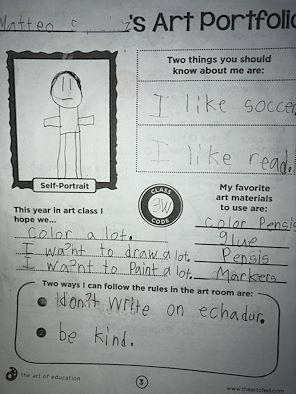 Matteo c
's Art Portfolio
Two things you should
know about me are:
I like soccer
I like read.
Self-Portrait
CLASS
3W
CODE
My favorite
art materials
to use are:
This year in art class I
hope we...
Color a lot.
I wa?nt to draw a lot.
I wa?nt to Paint a lot.
Color Pensis
glue
Pensis
Markers
Two ways I can follow the rules in the art room are:
I don?t Write on echadur.
be kind.
the art of education
3